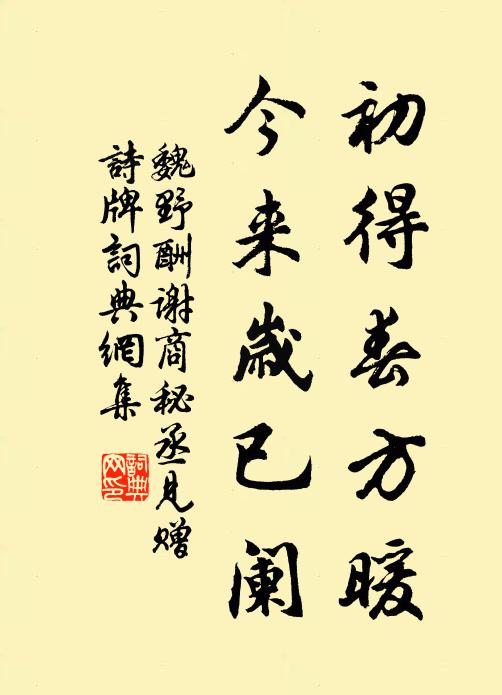 初得春方暖
今来歲已阑
魏野酬谢商秘丞见赠
詩牌詞典網集
詞典网印